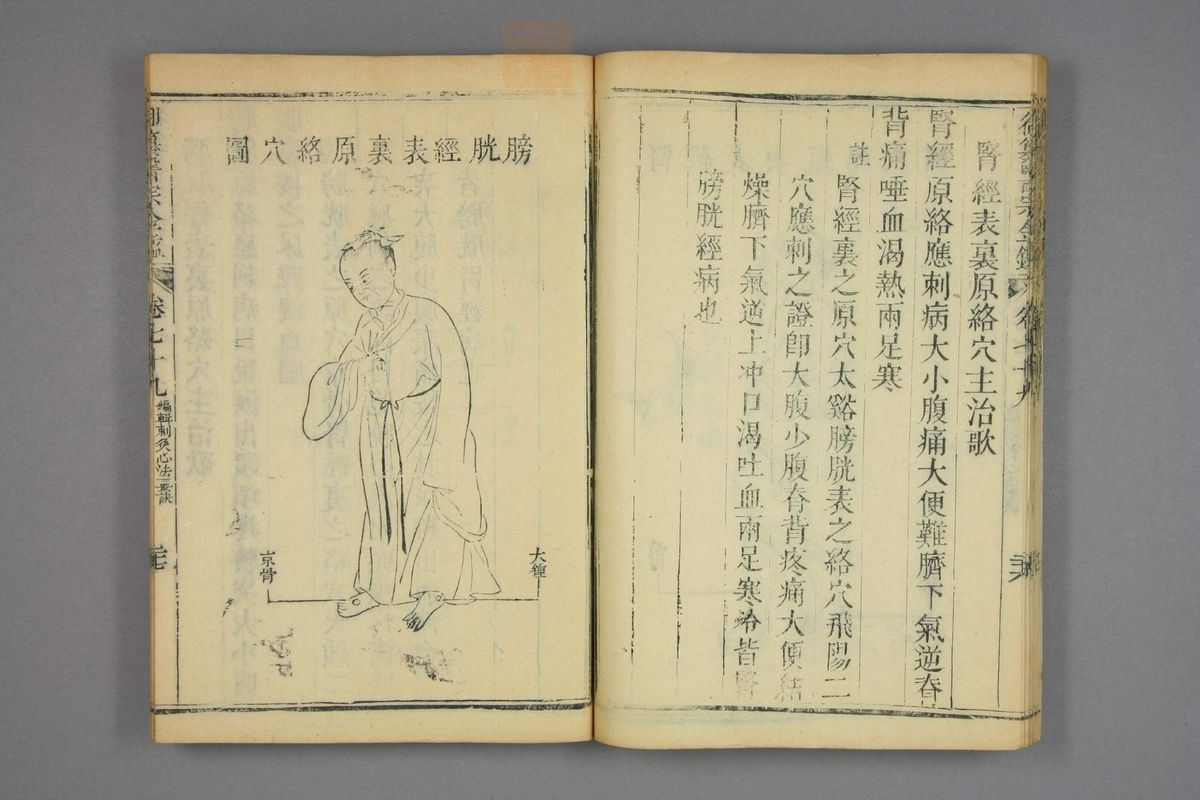 腎經表裏原絡穴主治歌
腎經原絡應刺病大小腹痛大便難臍下氣逆脊
背痛唾血渴熱兩足寒
註
腎經裏之原穴太谿膀胱表之絡穴飛陽二
穴應刺之證即大腹少腹脊背疼痛大便結
燥臍下氣逆上冲口渴吐血兩足寒冷皆腎
膀胱經病也
膀胱經表裏原絡穴圖
大鍾
京骨
卷七十九
編輯刺灸心法要訣